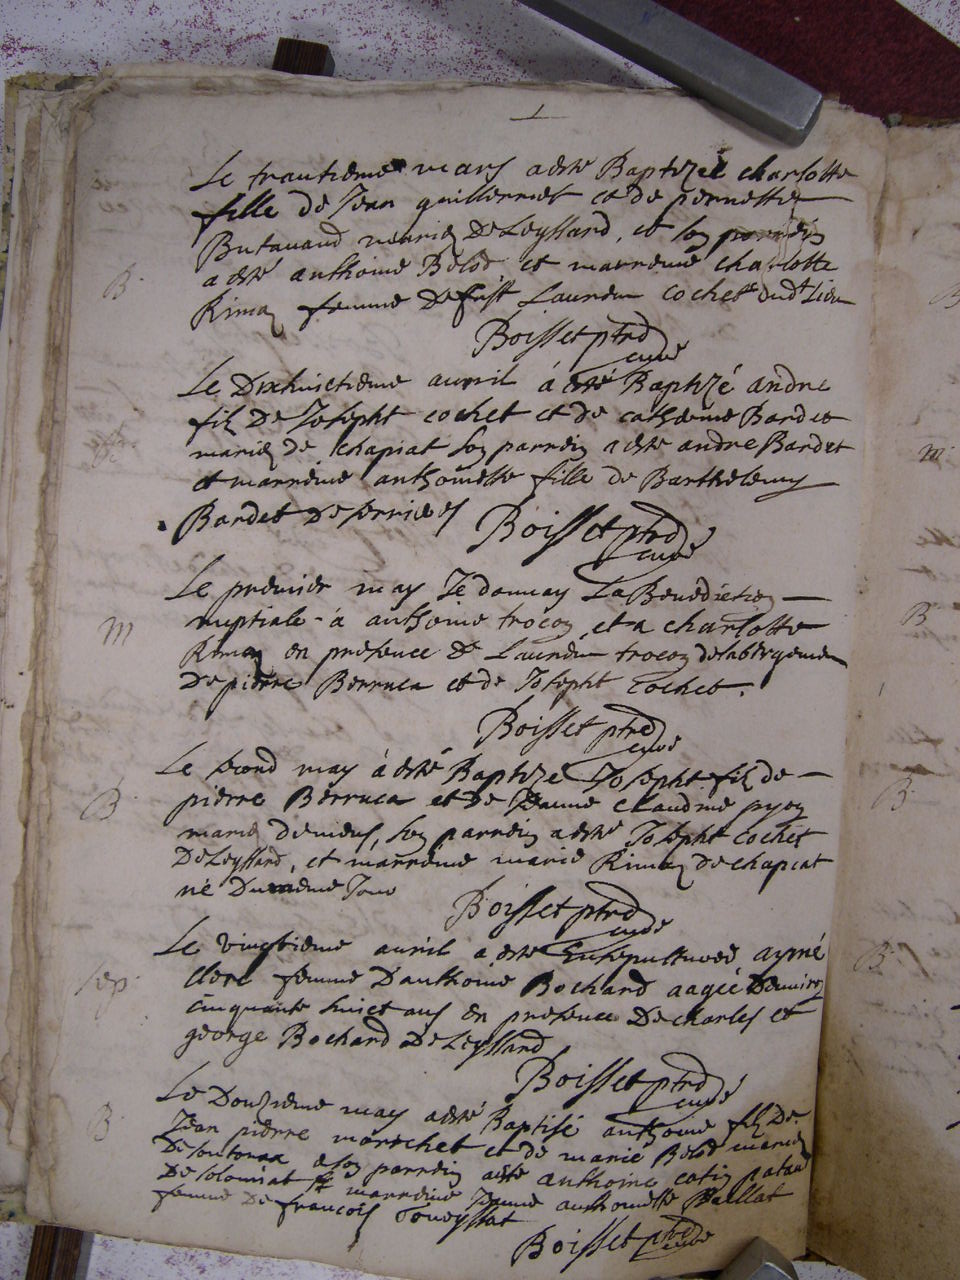 Le trantieme mars a esté Baptizeé charlotte
fille de Jean guillermet et de pernette
Butavand mariez De Leyssard, et son parrein
B. a esté anthoine Belod, et marreine charlotte
Rimoz femme De Laurenn cochet dudt Lieu
Boisset ptre curé
Le Dixhuictieme avvril à esté Baptizé andre
filz De Josepht cochet et de catherine Bardet
mariez de chapiat son parrein a esté andre Bardet
et marreine anthoinette fille de Barthelemy
Bardet De serrieres Boisset ptre curé
Le premier may Jé donnay La Benediction
m nuptiale à anthoine trocon et a charlotte
Rimoz en presence De Laurenn trocon
De pierre Berruca et de Josepht cochet.
Boisset ptre curé
Le second may à esté Baptizé Josepht filz de
B. pierre Berruca et De Jeanne claudine pyon
mariez, son parrein a esté Josepht cochet
De Leyssard, et marreine marie Rimoz de chapiat
né Du meme Jour Boisset ptre curé
Le vingtieme avril a esté Ensepultureé aymé
sep. clere femme D'anthoine Bochard aageé D'environ
cinquante huict ans en presence De charles et
george Bochard De Leyssard
Boisset ptre curé
Le Douzieme may a esté Baptisé anthoine filz De
B. Jean pierre marechet et de marie Belod mariez
son parrein a esté anthoine
De solomiat et marreine Jeanne anthoinette Baillat
femme De francois
Boisset ptre curé